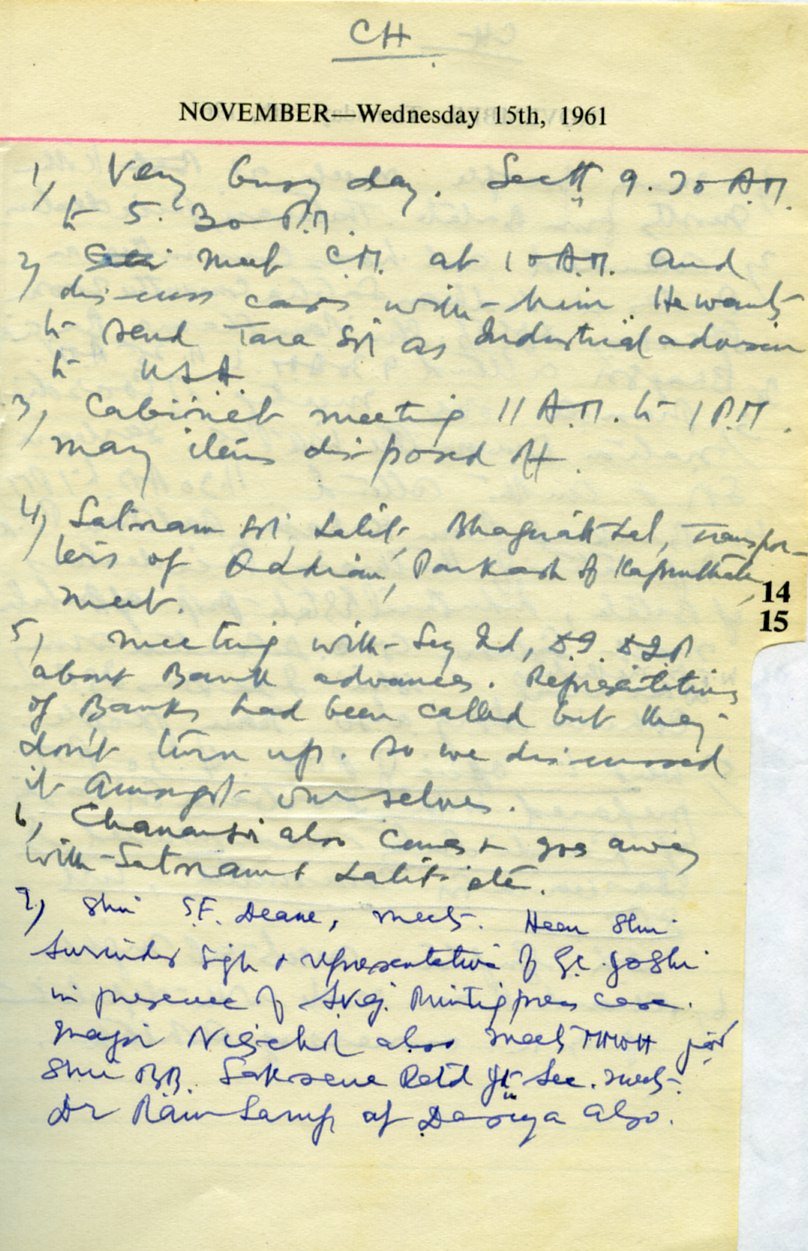 CH
NOVEMBER—Wednesday 15th, 1961
1, Very busy day. Sectt 9.30 A.M.
to 5.30 P.M.
2, meet C.M. at 10 A.M. and
discuss cases with him. He wants
to send Tara Sn as Industrial advisor
to USA.
3, Cabinet meeting 11 A.M. to 1 P.M.
many items disposed off.
4, Satnam Sn Lalit, Bhagwat Lal, Transpor-
ters of Parkash of Kapurthala
meet.
5, meeting with Secy Ind,
about Bank advances. Representatives
of Banks had been called but they
don't turn up. So we discussed
it Amongst ourselves.
6, Chanan Sn also comes & goes away
with Satnam & Lalit etc.
7, Shri S.F. Deane, meets. Hear Shri
Surinder Sigh & representative of G.C. Joshi
in presence of Printing press case.
Major also meets
Shri B.B. Saksena Retd Jt Sec. meets.
Dr Ram Sarup of also.
14
15